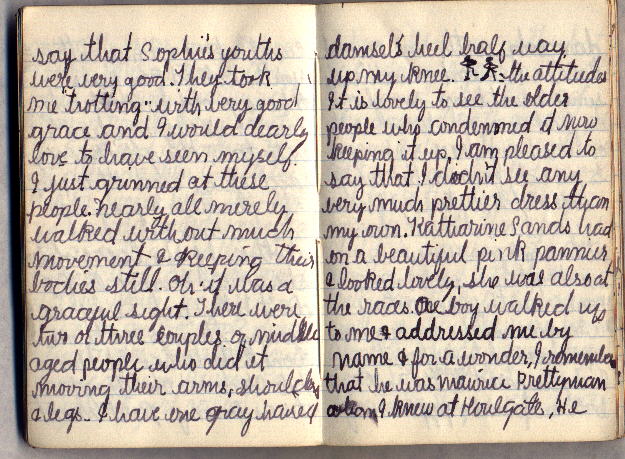 say that Sophie's youths
were very good. They took
me "trotting" with very good
grace and I would dearly
love to have seen myself.
I just grinned at these
people. Nearly all merely
walked without much
movement & keeping their
bodies still. Oh it was a
graceful sight. There were
two or three couples of middle
aged people who did it
moving their arms, shoulders
& legs. I have one gray haired
damsel's heel half way
up my knee. the attitudes
It is lovely to see the older
people who condemned it now
keeping it up. I am pleased to
say that I didn't see any
very much prettier dress than
my own. Katharine Sands had
on a beautiful pink pannier
& looked lovely, she was also at
the races. One boy walked up
to me & addressed me by
name & for a wonder, I remember
that he was Maurice Prettyman
whom I knew at Houlgate. He